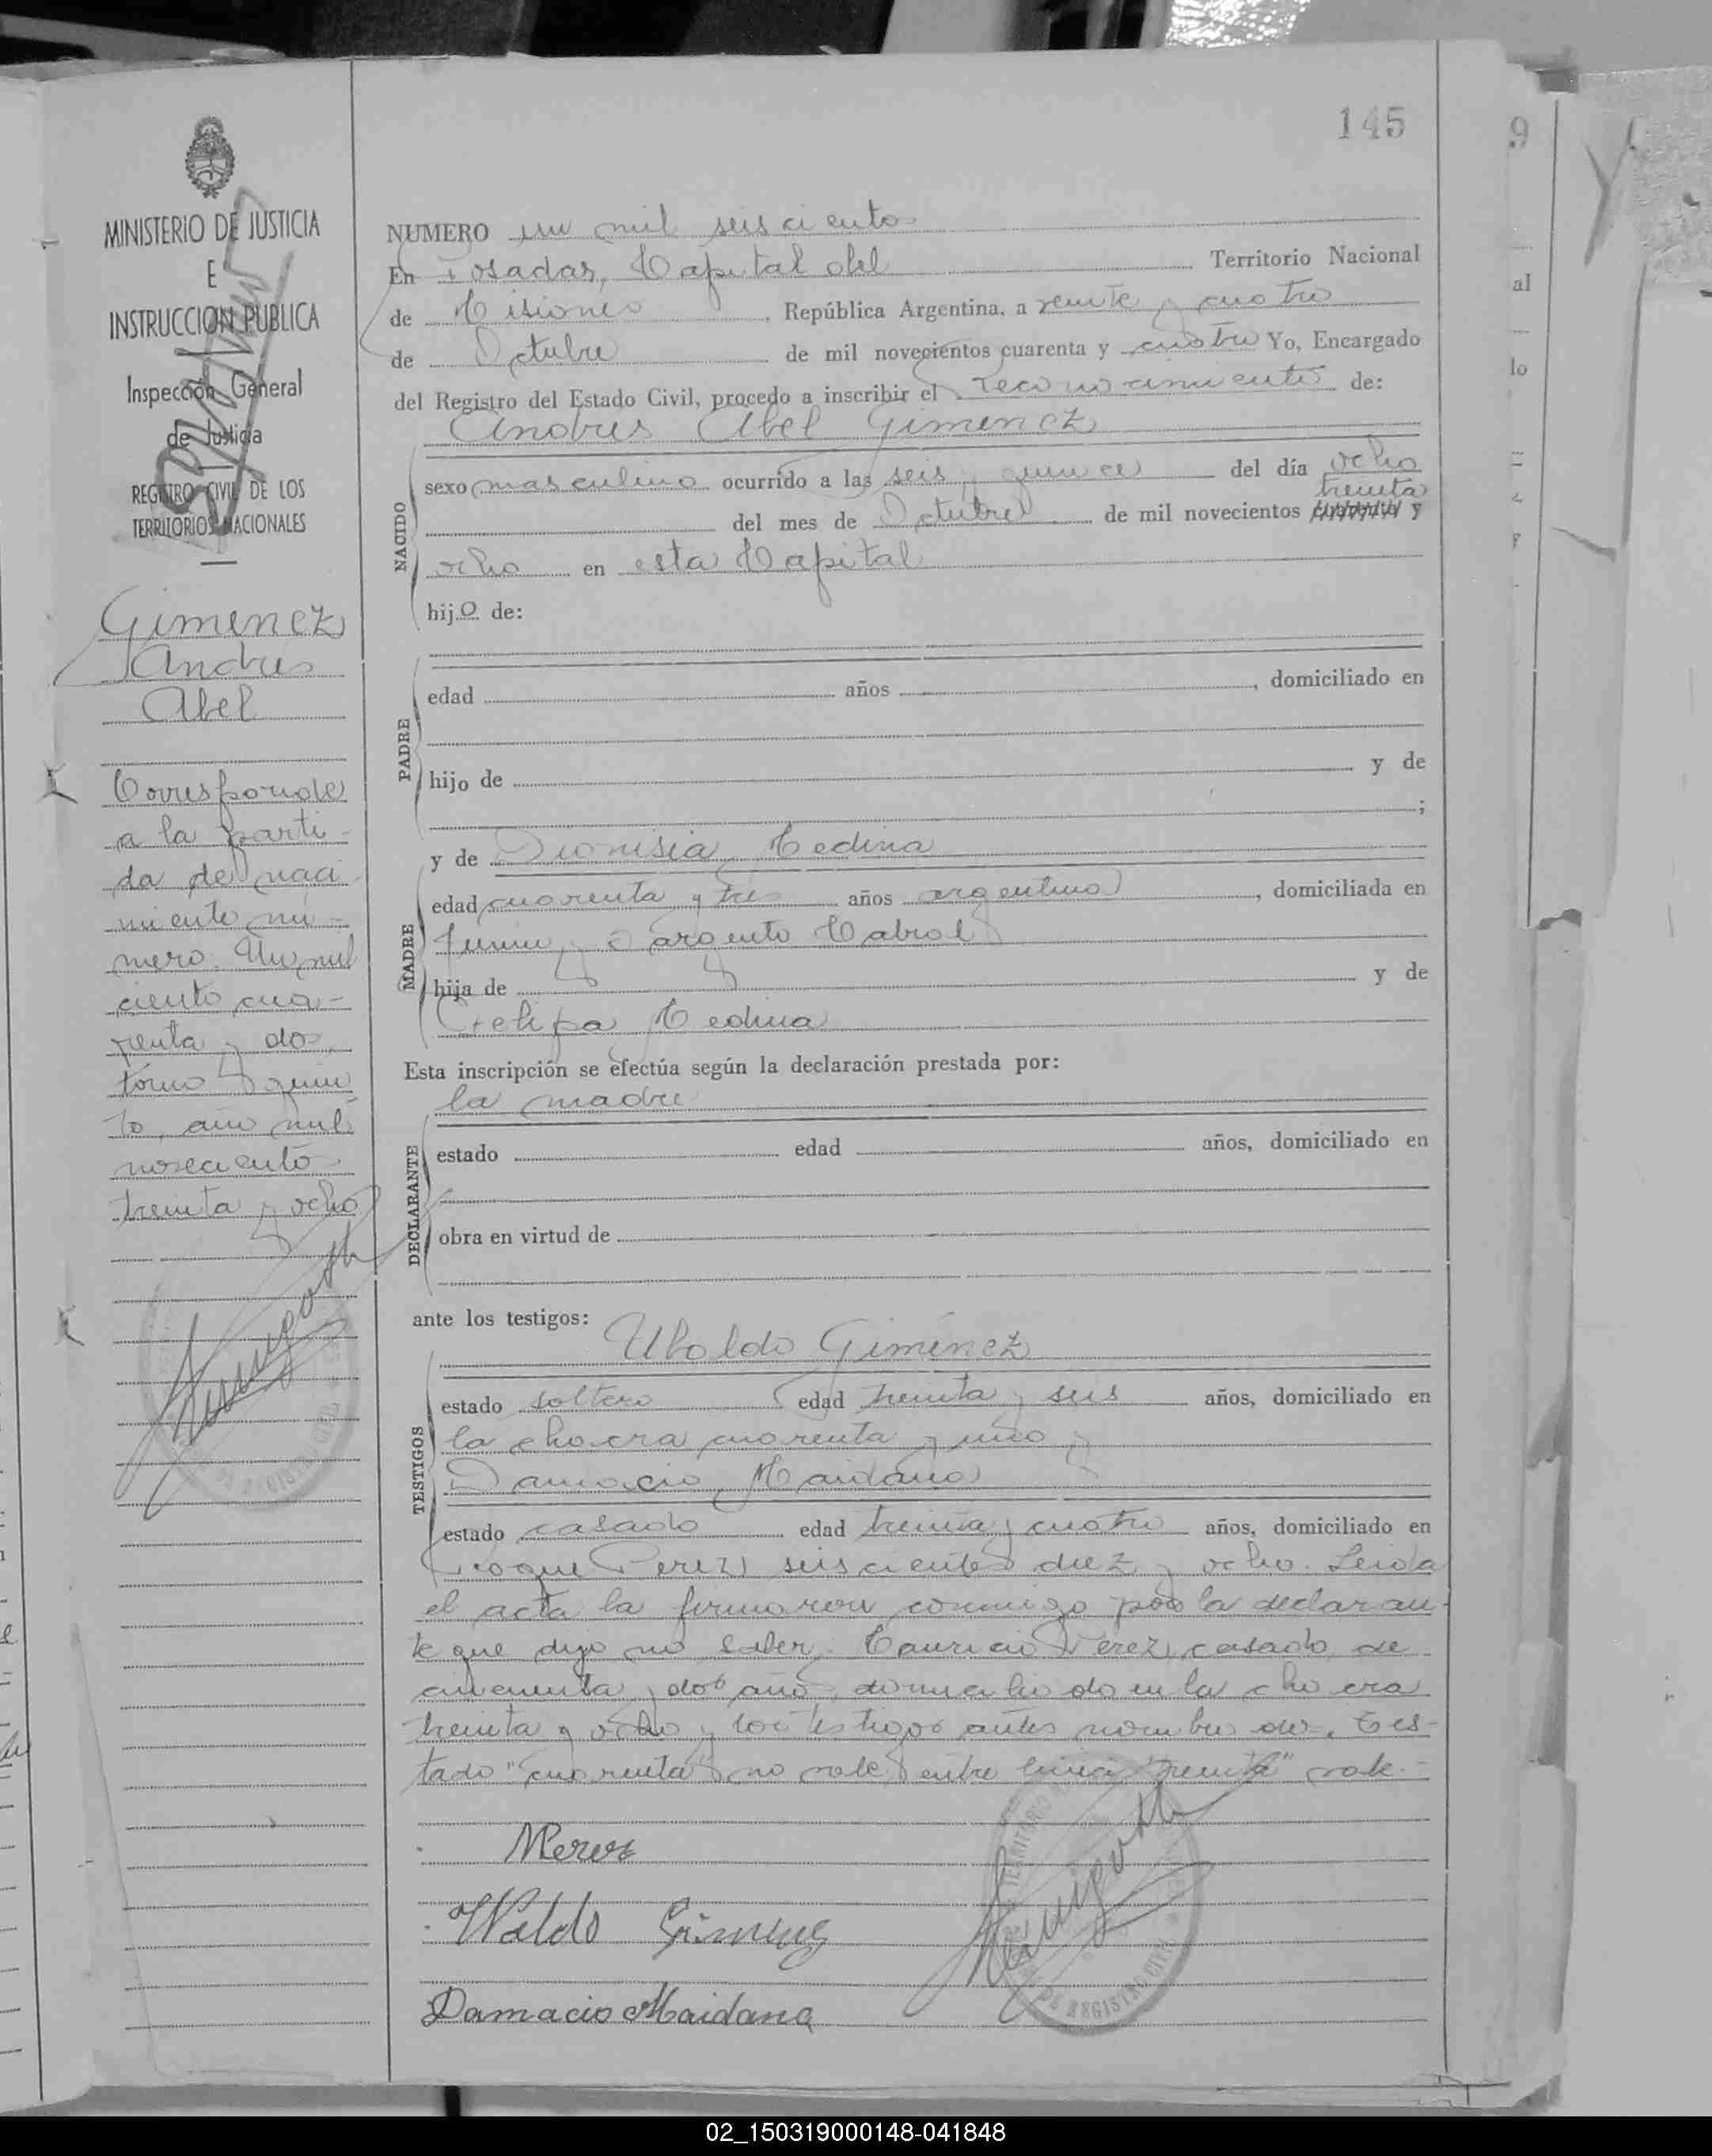 145
9
MINISTERIO DE JUSTICIA
E
INSTRUCCION PUBLICA
Inspección General
de Justicia
REGISTRO CIVIL DE LOS
TERRITORIOS NACIONALES
Gimenez
Andres
Abel
Corresponde
a la parti-
da de naci
miento nú-
mero Un mil
ciento cua-
renta y dos
tomo quin
to, año mil
novecientos
treinta y ocho
NUMERO un mil seiscientos
En Posadas, Capital del Territorio Nacional
de Misiones, República Argentina, a veinte y cuatro
de Octubre de mil novecientos cuarenta y cuatro Yo, Encargado
del Registro del Estado Civil, procedo a inscribir el reconocimiento de:
Andres Abel Gimenez
NACIDO
sexo masculino ocurrido a las seis y quince del día ocho
treinta
del mes de Octubre de mil novecientos cuarenta y
ocho en esta Capital
hijo de:
PADRE
edad años , domiciliado en
hijo de y de
;
MADRE
y de Dionisia Medina
edad cuarenta y tres años argentina, domiciliada en
Junin y Sargento Cabral
hija de y de
Felipa Medina
Esta inscripción se efectúa según la declaración prestada por:
la madre
DECLARANTE
estado edad años, domiciliado en
obra en virtud de
ante los testigos:
TESTIGOS
Ubaldo Gimenez
estado soltero edad treinta y seis años, domiciliado en
la chacra cuarenta y uno y
Damacio Maidana
estado casado edad treinta y cuatro años, domiciliado en
Roque Perez seiscientos diez y ocho. Leida
el acta la firmaron conmigo por la declaran-
te que dijo no saber, Mauricio Perez, casado, de
cincuenta y dos años, domiciliado en la chacra
treinta y ocho y los testigos antes nombrados. Tes-
tado "cuarenta" no vale, entre linea "treinta" vale.-
MPerez
Waldo Gimenez
Damacio Maidana
al
lo
02_150319000148-041848